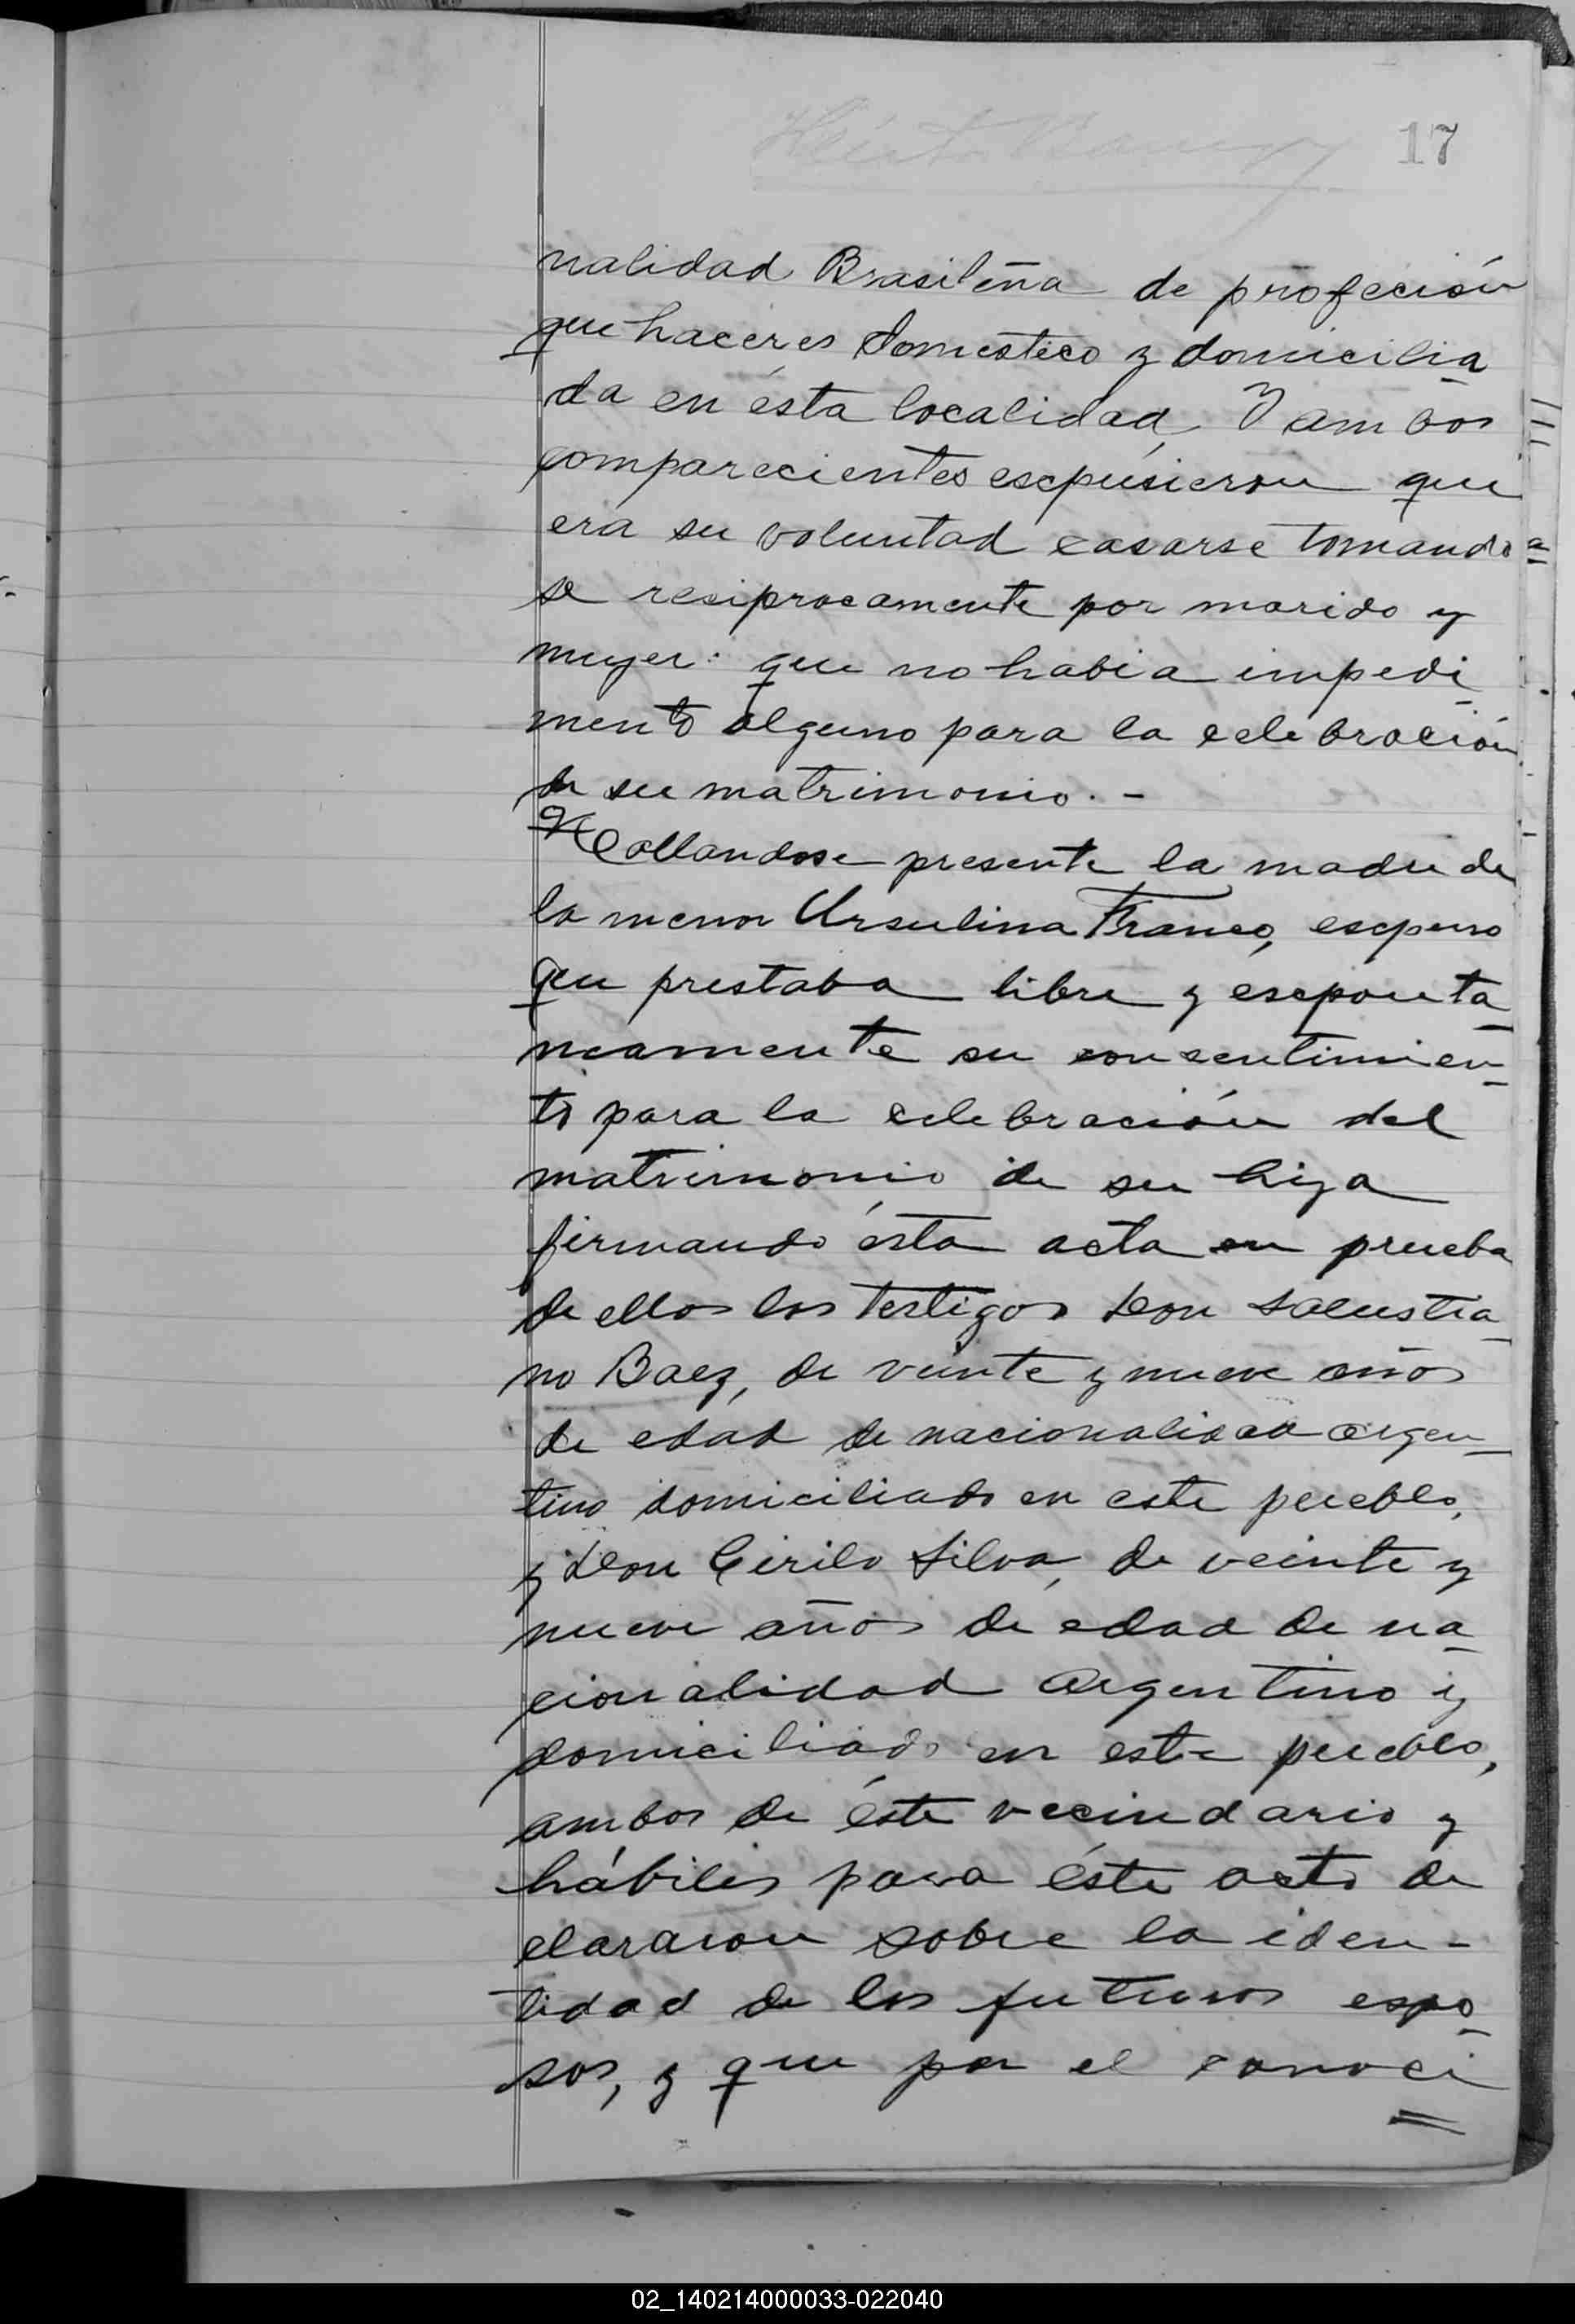 17
nalidad Brasileña de profeción
que haceres domestico y domicilia
da en ésta localidad, Y ambos
comparecientes escpusieron que
era su voluntad casarse tomando
se resiprocamente por marido y
muger: que no habia impedi
mento alguno para la celebración
de su matrimonio. -
Hallandose presente la madre de
la menor Ursulina Franco, escpuso
que prestaba libre y escponta
neamente su consentimien-
to para la celebración del
matrimonio de su hija
firmando ésta acta en prueba
de ellos los testigos Don Salustia
no Baez, de veinte y nueve años
de edad de nacionalidad argen
tino domiciliado en este pueblo,
y Don Cirilo Silva, de veinte y
nueve años de edad de na
cionalidad argentino y
domiciliado en este pueblo,
ambos de éste vecindario y
hábiles para éste acto de
clararon sobre la iden-
tidad de los futuros espo
sos, y que por el conoci
02_140214000033-022040